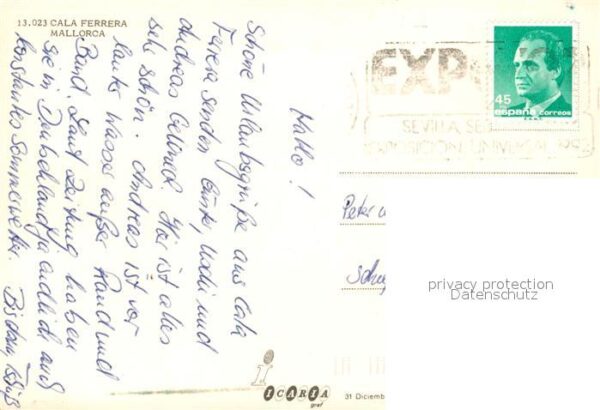 13.023 CALA FERRERA
MALLORCA
Hallo!
Schöne Urlaubsgrüße aus Cala
Ferera senden Günter, Uschi und
Andreas Gelinek. Hier ist alles
sehr schön. Andreas ist vor
lauter Wasser außer Rand und
Band. Laut Zeitung haben
sie in Deutschland ja endlich auch
konstantes Sommerwetter. Bis dann, Tschüß
EXPO
SEVILLA
EXPOSICION UNIVERSAL
45
españa correos
Peter
privacy protection
Datenschutz
ICARIA
graf
31 Diciemb